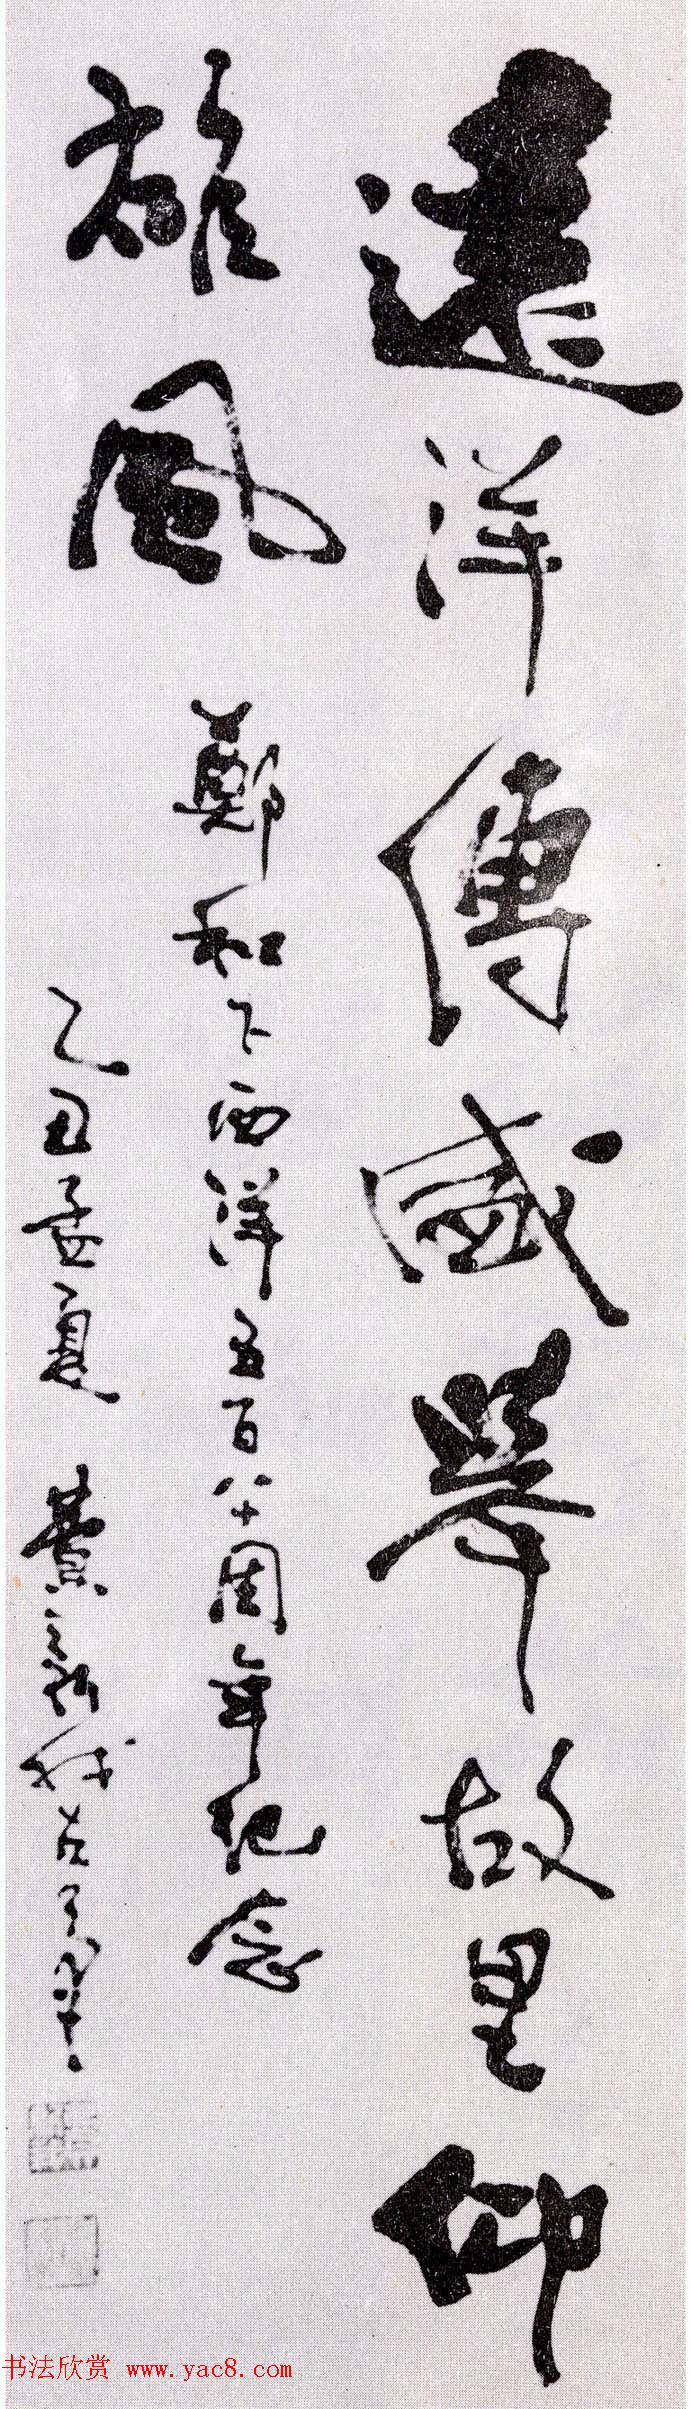 遠洋傳盛舉故里仰
雄風
鄭和下西洋五百八十周年紀念
乙丑孟夏 費新我左
书法欣赏 www.yac8.com